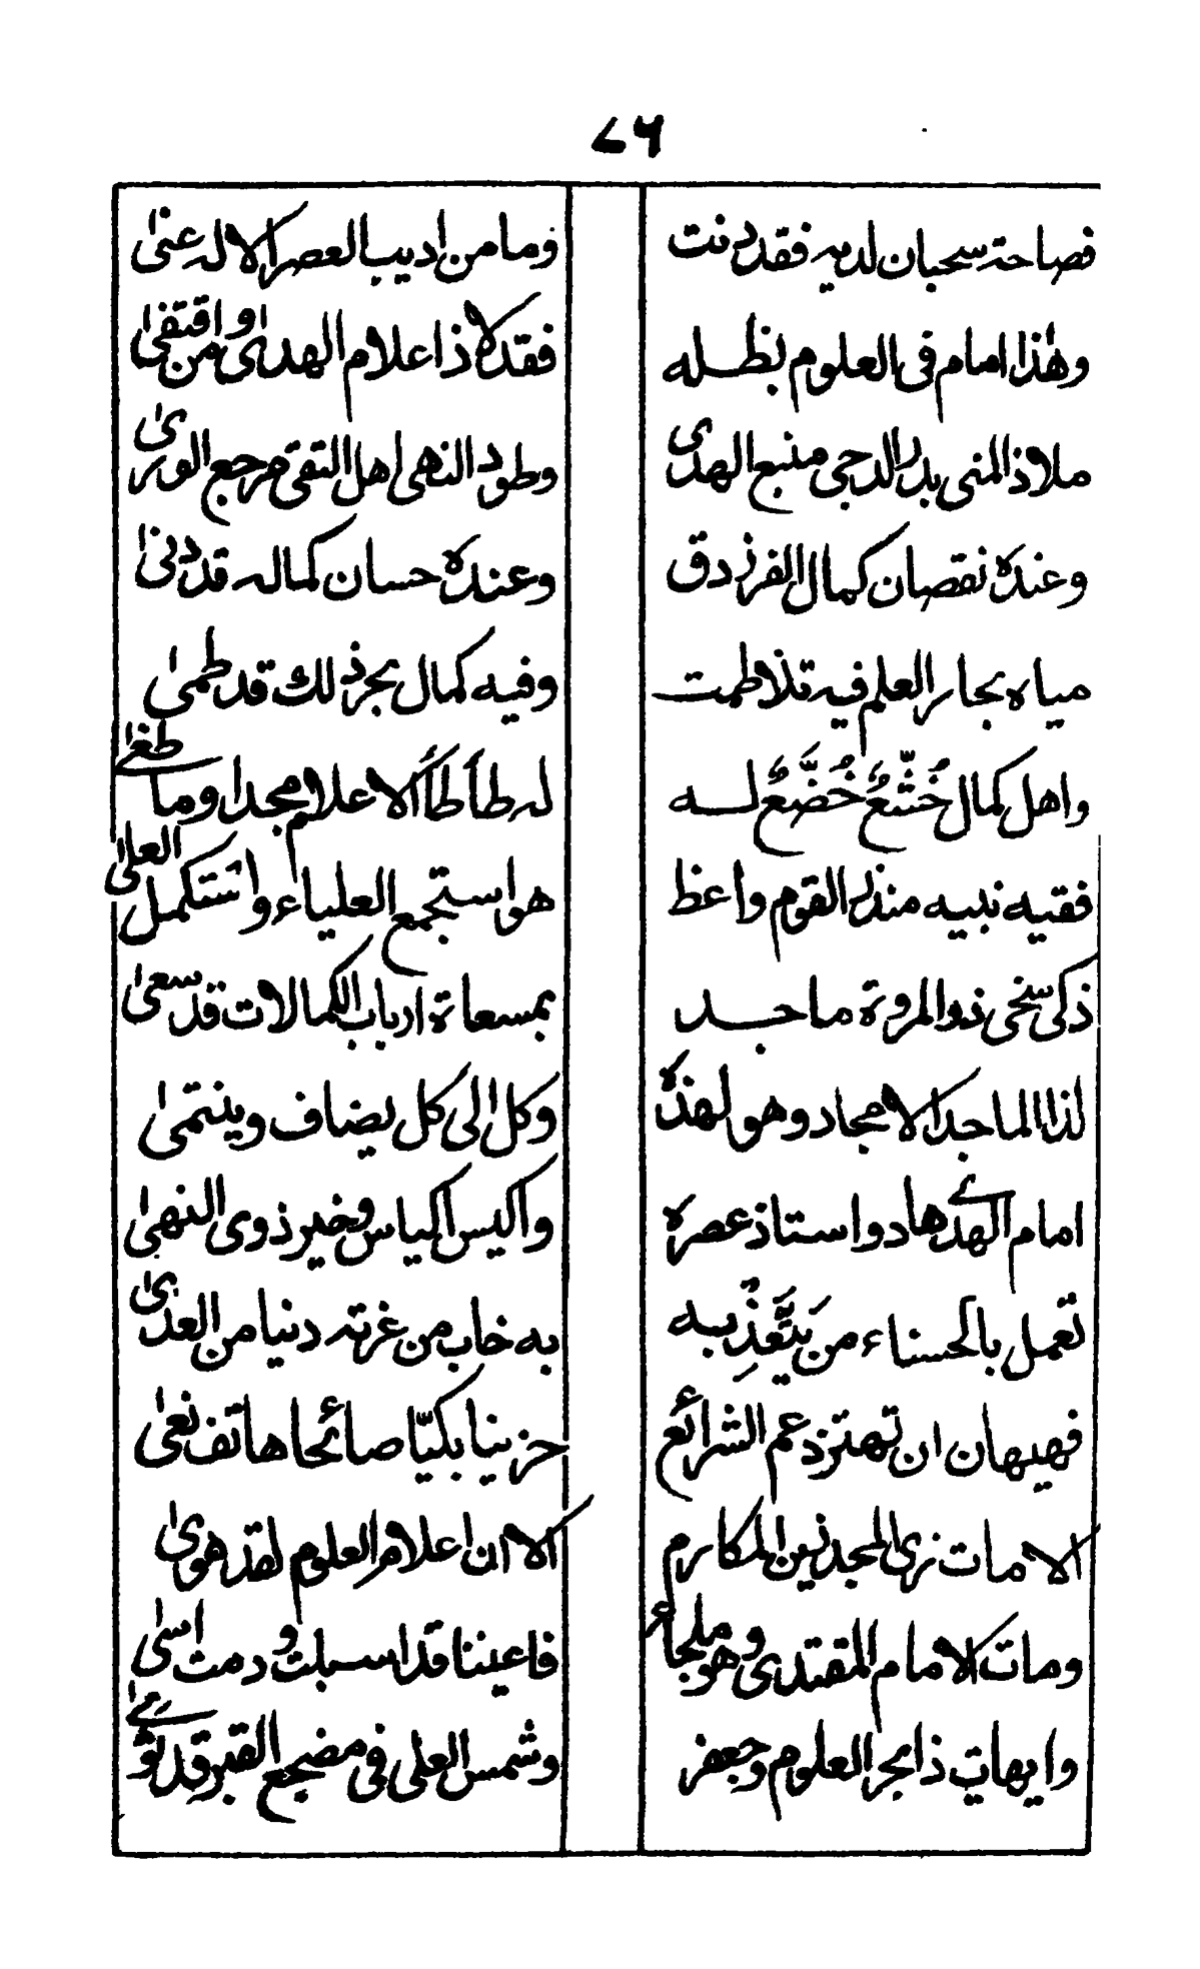 ۷۶
فصاحة سحبان لديه فقد دنت
وما من اديب العصر الا له عنیٰ
وهٰذا امام فی العلوم بظله
فقد لاذ اعلام الهدی و من اقتفیٰ
ملاذ المنی بدر الدجی منبع الهدی
وطود النهی اهل التقی مرجع الوریٰ
وعنده نقصان كمال الفرزدق
وعنده حسان كماله قد دنیٰ
مياه بحار العلم فيه تلاطمت
وفيه كمال بحر ذلك قد طمیٰ
واهل كمال خُشَّعٌ خُضَّعٌ له
له طأطأ الاعلام مجدا وما طغیٰ
فقيه نبيه منذر القوم واعظ
هو استجمع العلياء واستكمل العلیٰ
ذكی سخی ذو المروة ماجد
بمسعاة ارباب الكمالات قد سعیٰ
لذا الماجد الامجاد وهو لهذه
وكل الی كل يضاف وينتمیٰ
امام الهدے هاد واستاذ عصره
واكيس اكياس وخير ذوی النهیٰ
تعمل بالحسناء من يَتَّعِذ به
به خاب من غرته دنيا من العدیٰ
فهيهان ان تهتز دعم الشرائع
حزينا بكيّا صائحا هاتف نعیٰ
الا مات نری المجد زين المكارم
الا ان اعلام العلوم لقد هویٰ
ومات الامام المقتدی وهو ملجاء
فاعيننا قد اسبلت و دمت اسیٰ
وايهات ذا بحر العلوم وجعفر
وشمس العلی فی مضجع القبر قد ثوٰے